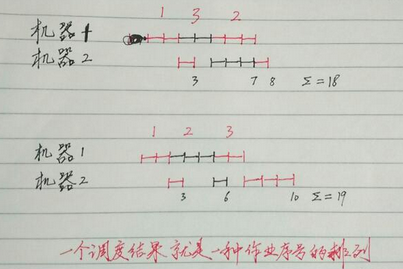 1 3 2
机器1
机器2
3 7 8 Σ=18
1 2 3
机器1
机器2
3 6 10 Σ=19
一个调度结果就是一种作业序号的排列